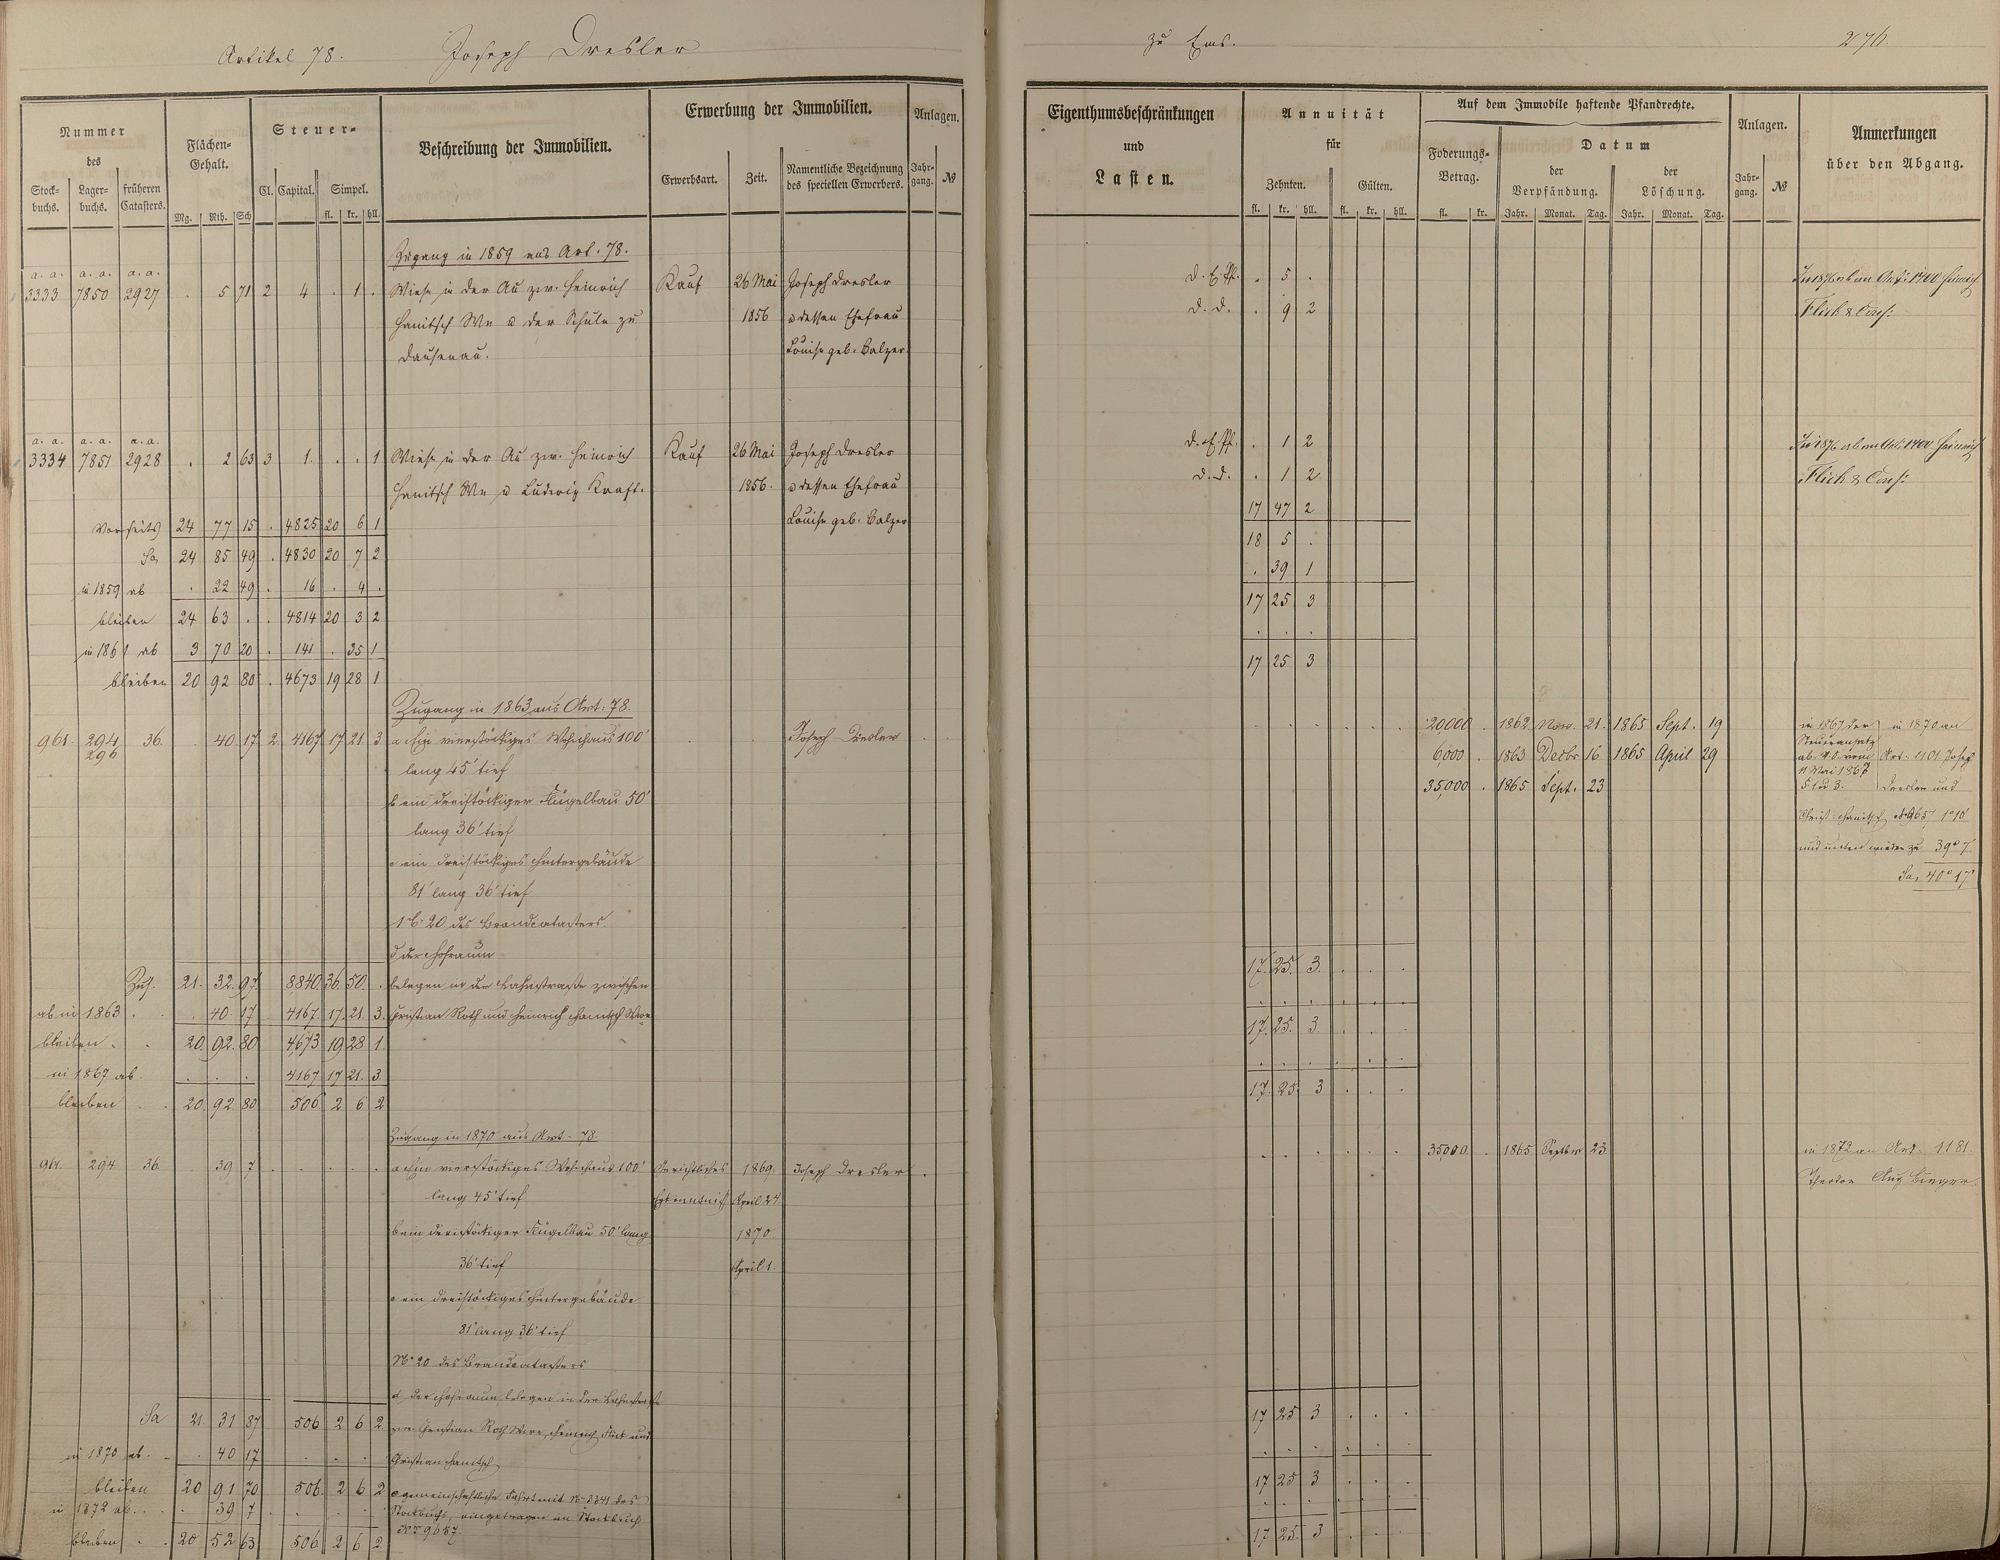 Artikel 78. Joseph Dresler
zu Ems. 276.
Nummer des
Stockbuchs. Lagerbuchs. früheren Catasters.
Flächen-Gehalt.
Mg. Rth. Sch
Steuer-
Cl. Capital. Simpel.
fl. kr. hll.
Beschreibung der Immobilien.
Erwerbung der Immobilien.
Erwerbsart. Zeit. Namentliche Bezeichnung des speciellen Erwerbers.
Anlagen.
Jahrgang. №
Eigenthumsbeschränkungen
und
Lasten.
Annuität
für
Zehnten. Gülten.
fl. kr. hll. fl. kr. hll.
Auf dem Immobile haftende Pfandrechte.
Foderungs-Betrag.
fl. kr.
Datum
der Verpfändung. der Löschung.
Jahr. Monat. Tag. Jahr. Monat. Tag.
Anlagen.
Jahrgang. №
Anmerkungen
über den Abgang.
Zugang in 1859 aus Art. 78.
a. a. a. a. a. a.
3333 7850 2927 . 5 71 2 4 . 1 . Wiese in der Au zw. Heinrich Kauf 26 Mai Joseph Dresler d. E. Pf. . 5 .
Hanitsch We u der Schule zu 1856 u dessen Ehefrau d. D. . 9 2 Flick & Cons:
Dausenau. Louise geb. Balzer
a. a. a. a. a. a.
3334 7851 2928 . 2 63 3 1 . . 1 Wiese in der Au zw. Heinrich Kauf 26 Mai Joseph Dresler . 1 2
Hanitsch We u Ludwig Kraft. 1856. u dessen Ehefrau d. D. . 1 2 Flick & Cons:
Vorseits 24 77 15 . 4825 20 6 1 Louise geb. Balzer 17 47 2
Sa 24 85 49 . 4830 20 7 2 18 5 .
in 1859 ab . 22 49 . 16 . 4 . . 39 1
bleiben 24 63 . . 4814 20 3 2 17 25 3
in 1861 ab 3 70 20 . 141 . 35 1 . . .
bleiben 20 92 80 . 4673 19 28 1 17 25 3
Zugang in 1863 aus Art: 78.
961. 294 36. . 40 17 2. 4167 17 21 3 a Ein vierstöckiges Wohnhaus 100' Joseph Dresler 20,000 . 1862 Nov. 21. 1865 Sept. 19 in 1867 der Steueransatz in 1870 an
296 lang 45' tief 6,000 . 1863 Decbr 16 1865 April 29 ab. vom 11 Mai 1867 Art. 1101 Josef
b ein dreistöckiger Flügelbau 50' 35,000 . 1865 Sept. 23 Dresler und
lang 36' tief
c ein dreistöckiges Hintergebäude und wieder zu 39° 7'
81' lang 36' tief Sa. 40° 17'
No 20 des Brandcatasters
d der Hofraum
Zus. 21. 32. 97. 8840. 36. 50. . belegen in der Lahnstraße zwischen 17. 25. 3. . . .
ab in 1863 . . . 40. 17 4167. 17. 21. 3. Christian Roth und Heinrich Hanitsch Wwe . . . . . .
bleiben . . 20. 92. 80 4673 19 28 1. 17. 25. 3. . . .
in 1867 ab . . . 4167 17 21. 3. . . . . . .
bleiben . . 20 92 80 506 2 6 2 17. 25. 3 . . .
Zugang in 1870 aus Art. 78.
961. 294 36. 39 7 . . . . . a Ein vierstöckiges Wohnhaus 100' Gerichtliches 1869. Joseph Dresler . 35,000 . 1865 Septbr 23. in 1872 an Art. 1181.
lang 45' tief Erkenntniß April 24 Theodor Aug.
b ein dreistöckiger Flügelbau 50' lang 1870.
36' tief April 1.
c ein dreistöckiges Hintergebäude
81' lang 36' tief
No 20 des Brandcatasters
d der Hofraum belegen in der Lahnstraße
Sa 21. 31 87 506 2 6 2. zw. Christian Roth Wwe, Heinrich Flick und 17 25 3 . . .
in 1870 ab . . . 40 17 . . . . Christian Hanitsch . . . . . .
bleiben 20 91 70 506. 2 6 2 gemeinschaftliche Fahrt mit No 3341 des 17 25 3 . . .
in 1872 ab . . . 39 7 . . . . Stockbuchs, eingetragen im Stockbuch . . . . . .
bleiben . . 20 52 63 506 2 6 2 17 25. 3 . . .